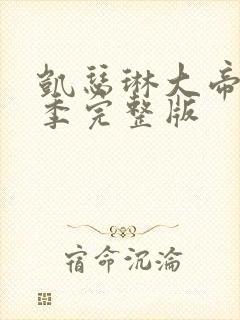 凯瑟琳大帝
季完整版
宿命沉沦